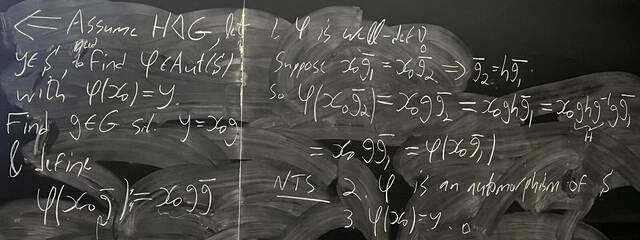 ⇐ Assume H◁G, let
y∈S, need to find φ∈Aut(S)
with φ(x₀)=y.
Find g∈G s.t. y=x₀g
& define
φ(x₀g̅)=x₀gg̅
1. φ is well-def'd
Suppose x₀g̅₁=x₀g̅₂ ⇒ g̅₂=hg̅₁.
So φ(x₀g̅₂)=x₀gg̅₂=x₀ghg̅₁=x₀ghg⁻¹gg̅₁
H
=x₀gg̅₁=φ(x₀g̅₁)
NTS 2. φ is an automorphism of S
3. φ(x₀)=y.